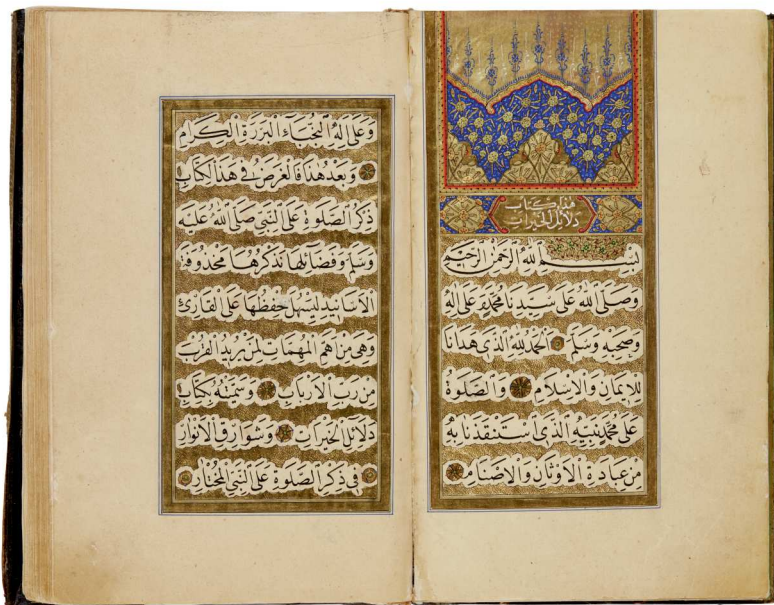 هذا كتاب
دلائل الخيرات
بِسْمِ اللهِ الرَّحْمٰنِ الرَّحِيمِ
وَصَلَّى اللهُ عَلٰى سَيِّدِنَا مُحَمَّدٍ وَعَلٰى اٰلِهِ
وَصَحْبِهِ وَسَلَّمَ اَلْحَمْدُ لِلّٰهِ الَّذِى هَدَانَا
لِلْاِيمَانِ وَالْاِسْلَامِ وَالصَّلٰوةُ
عَلٰى مُحَمَّدٍ نَبِيِّهِ الَّذِى اسْتَنْقَذَنَا بِهِ
مِنْ عِبَادَةِ الْاَوْثَانِ وَالْاَصْنَامِ
وَعَلٰى اٰلِهِ النُّجَبَاءِ الْبَرَرَةِ الْكِرَامِ
وَبَعْدَ هٰذَا فَالْغَرَضُ فِى هٰذَا الْكِتَابِ
ذِكْرُ الصَّلٰوةِ عَلَى النَّبِىِّ صَلَّى اللهُ عَلَيْهِ
وَسَلَّمَ وَفَضَائِلُهَا نَذْكُرُهَا مَحْذُوفَةَ
الْاَسَانِيدِ لِيَسْهُلَ حِفْظُهَا عَلَى الْقَارِئِ
وَهِىَ مِنْ اَهَمِّ الْمُهِمَّاتِ لِمَنْ يُرِيدُ الْقُرْبَ
مِنْ رَبِّ الْاَرْبَابِ وَسَمَّيْتُهُ بِكِتَابِ
دَلَائِلِ الْخَيْرَاتِ وَشَوَارِقِ الْاَنْوَارِ
فِى ذِكْرِ الصَّلٰوةِ عَلَى النَّبِىِّ الْمُخْتَارِ